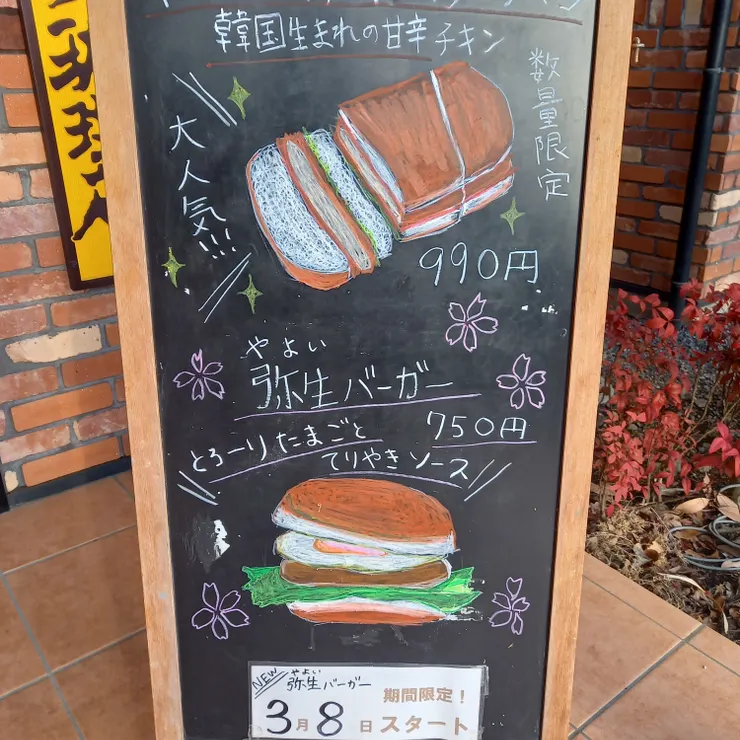 韓国生まれの甘辛チキン
数量限定
大人気!!!
990円
やよい
弥生バーガー
750円
とろーりたまごと
てりやきソース
NEW
やよい
弥生バーガー
期間限定!
3月8日スタート